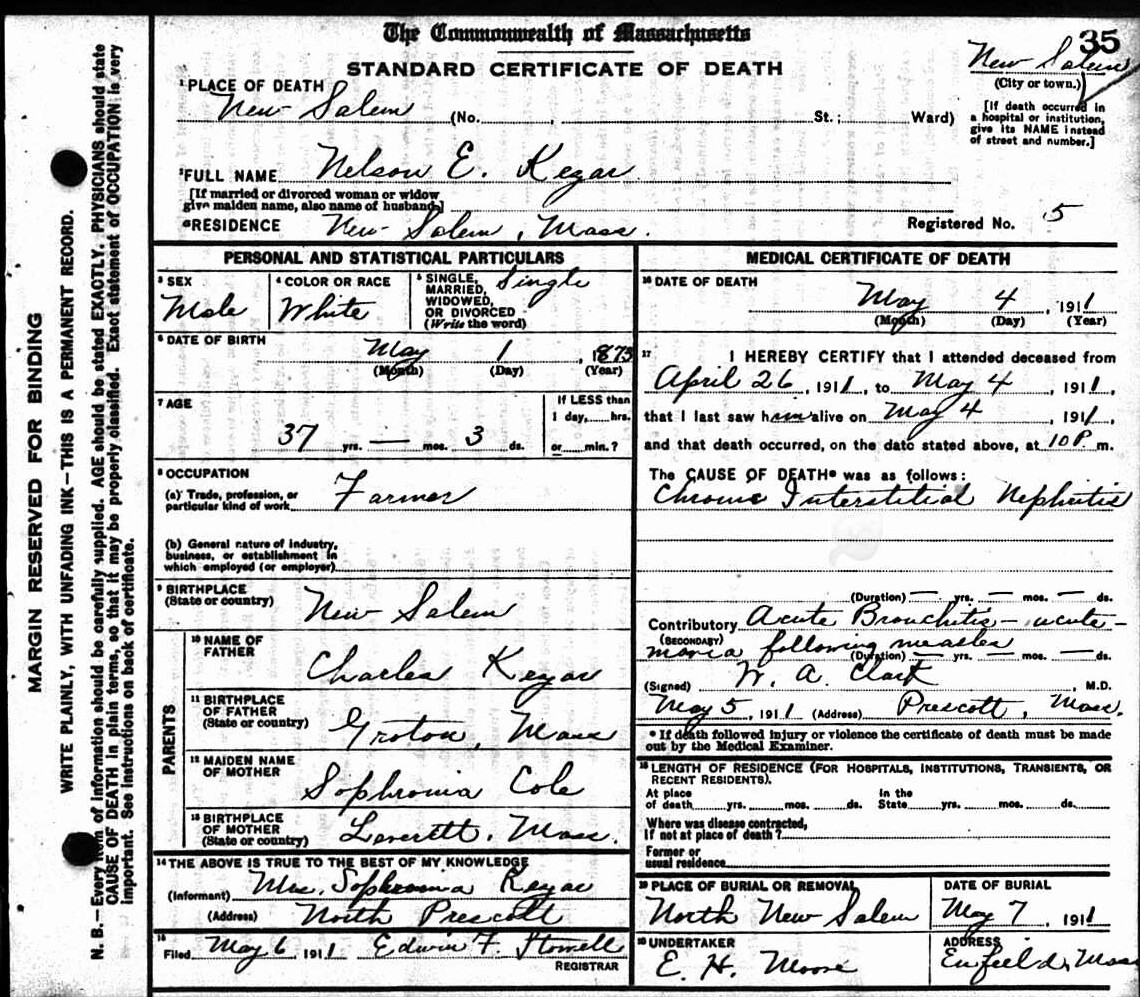 The Commonwealth of Massachusetts
35
STANDARD CERTIFICATE OF DEATH
New Salem
(City or town.)
[If death occurred in
a hospital or institution,
give its NAME instead
of street and number.]
1 PLACE OF DEATH
New Salem (No. , St.; Ward)
2 FULL NAME Nelson E. Kegar
[If married or divorced woman or widow
give maiden name, also name of husband.]
RESIDENCE New Salem, Mass. Registered No. 5
PERSONAL AND STATISTICAL PARTICULARS
3 SEX
Male
4 COLOR OR RACE
White
5 SINGLE,
MARRIED,
WIDOWED,
OR DIVORCED
(Write the word)
Single
6 DATE OF BIRTH
May 1, 1873
(Month) (Day) (Year)
7 AGE
37 yrs. — mos. 3 ds.
If LESS than
1 day, hrs.
or min.?
8 OCCUPATION
(a) Trade, profession, or
particular kind of work Farmer
(b) General nature of industry,
business, or establishment in
which employed (or employer)
9 BIRTHPLACE
(State or country) New Salem
PARENTS
10 NAME OF
FATHER
Charles Kegar
11 BIRTHPLACE
OF FATHER
(State or country)
Groton, Mass
12 MAIDEN NAME
OF MOTHER
Sophronia Cole
13 BIRTHPLACE
OF MOTHER
(State or country) Leverett, Mass.
14 THE ABOVE IS TRUE TO THE BEST OF MY KNOWLEDGE
(Informant) Mrs. Sophronia Kegar
(Address) North Prescott
15
Filed May 6 1911 Edwin F. Stowell
REGISTRAR
MEDICAL CERTIFICATE OF DEATH
16 DATE OF DEATH
May 4, 1911
(Month) (Day) (Year)
17 I HEREBY CERTIFY that I attended deceased from
April 26, 1911, to May 4, 1911,
that I last saw him alive on May 4, 1911,
and that death occurred, on the date stated above, at 10 P. m.
The CAUSE OF DEATH* was as follows:
Chronic Interstitial Nephritis
(Duration) — yrs. — mos. — ds.
Contributory Acute Bronchitis - acute -
(SECONDARY)
mania following measles
(Duration) — yrs. — mos. — ds.
(Signed) W. A. Clark, M.D.
May 5, 1911 (Address) Prescott, Mass.
* If death followed injury or violence the certificate of death must be made
out by the Medical Examiner.
18 LENGTH OF RESIDENCE (FOR HOSPITALS, INSTITUTIONS, TRANSIENTS, OR
RECENT RESIDENTS).
At place
of death yrs. mos. ds.
In the
State yrs. mos. ds.
Where was disease contracted,
If not at place of death?
Former or
usual residence
19 PLACE OF BURIAL OR REMOVAL
North New Salem
DATE OF BURIAL
May 7, 1911
20 UNDERTAKER
E. H. Moore
ADDRESS
Enfield, Mass
MARGIN RESERVED FOR BINDING
WRITE PLAINLY, WITH UNFADING INK—THIS IS A PERMANENT RECORD.
N. B.—Every item of information should be carefully supplied. AGE should be stated EXACTLY. PHYSICIANS should state
CAUSE OF DEATH in plain terms, so that it may be properly classified. Exact statement of OCCUPATION is very
important. See instructions on back of certificate.